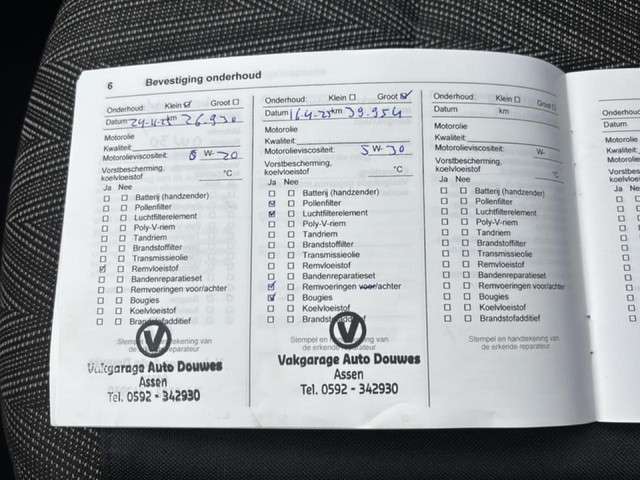 6 Bevestiging onderhoud
Onderhoud: Klein ☑ Groot ☐
Datum 24-4-25 km 26.930
Motorolie
Kwaliteit:
Motorolieviscositeit: 0 W- 20
Vorstbescherming,
koelvloeistof °C
Ja Nee
☐ ☐ Batterij (handzender)
☐ ☐ Pollenfilter
☐ ☐ Luchtfilterelement
☐ ☐ Poly-V-riem
☐ ☐ Tandriem
☐ ☐ Brandstoffilter
☐ ☐ Transmissieolie
☑ ☐ Remvloeistof
☐ ☐ Bandenreparatieset
☐ ☐ Remvoeringen voor/achter
☐ ☐ Bougies
☐ ☐ Koelvloeistof
☐ ☐ Brandstofadditief
Stempel en handtekening van
de erkende reparateur
V
Vakgarage Auto Douwes
Assen
Tel. 0592 - 342930
Onderhoud: Klein ☐ Groot ☑
Datum 16-4-25 km 39.954
Motorolie
Kwaliteit:
Motorolieviscositeit: 5 W- 30
Vorstbescherming,
koelvloeistof °C
Ja Nee
☐ ☐ Batterij (handzender)
☑ ☐ Pollenfilter
☑ ☐ Luchtfilterelement
☐ ☐ Poly-V-riem
☐ ☐ Tandriem
☐ ☐ Brandstoffilter
☐ ☐ Transmissieolie
☐ ☐ Remvloeistof
☐ ☐ Bandenreparatieset
☑ ☐ Remvoeringen voor/achter
☑ ☐ Bougies
☐ ☐ Koelvloeistof
☐ ☐ Brandstofadditief
Stempel en handtekening van
de erkende reparateur
V
Vakgarage Auto Douwes
Assen
Tel. 0592 - 342930
Onderhoud: Klein ☐ Groot ☐
Datum km
Motorolie
Kwaliteit:
Motorolieviscositeit: W-
Vorstbescherming,
koelvloeistof °C
Ja Nee
☐ ☐ Batterij (handzender)
☐ ☐ Pollenfilter
☐ ☐ Luchtfilterelement
☐ ☐ Poly-V-riem
☐ ☐ Tandriem
☐ ☐ Brandstoffilter
☐ ☐ Transmissieolie
☐ ☐ Remvloeistof
☐ ☐ Bandenreparatieset
☐ ☐ Remvoeringen voor/achter
☐ ☐ Bougies
☐ ☐ Koelvloeistof
☐ ☐ Brandstofadditief
Stempel en handtekening van
de erkende reparateur
Datum
Ja